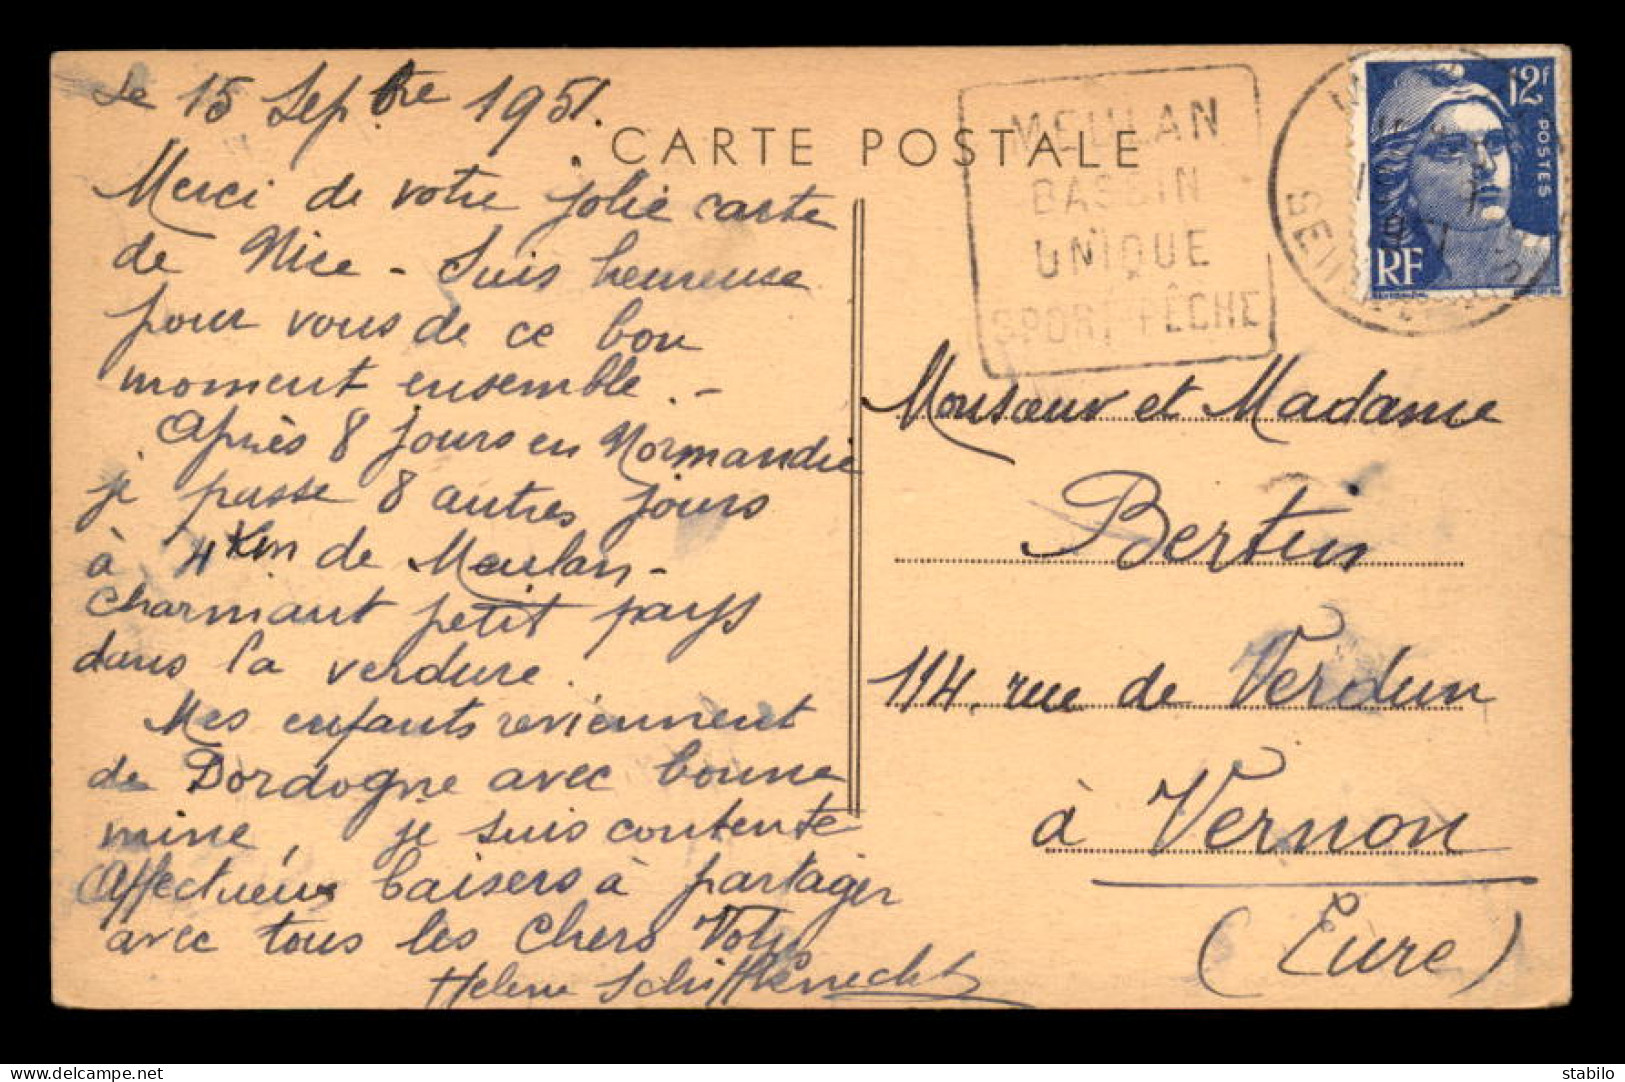 Le 15 Septbre 1951.
Merci de votre jolie carte
de Nice - Suis heureuse
pour vous de ce bon
moment ensemble. -
Après 8 jours en Normandie
je passe 8 autres jours
à 4 Km de Meulan -
charmant petit pays
dans la verdure.
Mes enfants reviennent
de Dordogne avec bonne
mine, je suis contente
Affectueux baisers à partager
avec tous les chers
Helene Schiffknecht
CARTE POSTALE
MEULAN
BASSIN
UNIQUE
SPORT PÊCHE
12F
POSTES
RF
SEINE
Monsieur et Madame
Bertin
114, rue de Verdun
à Vernon
(Eure)
stabilo
delcampe.net